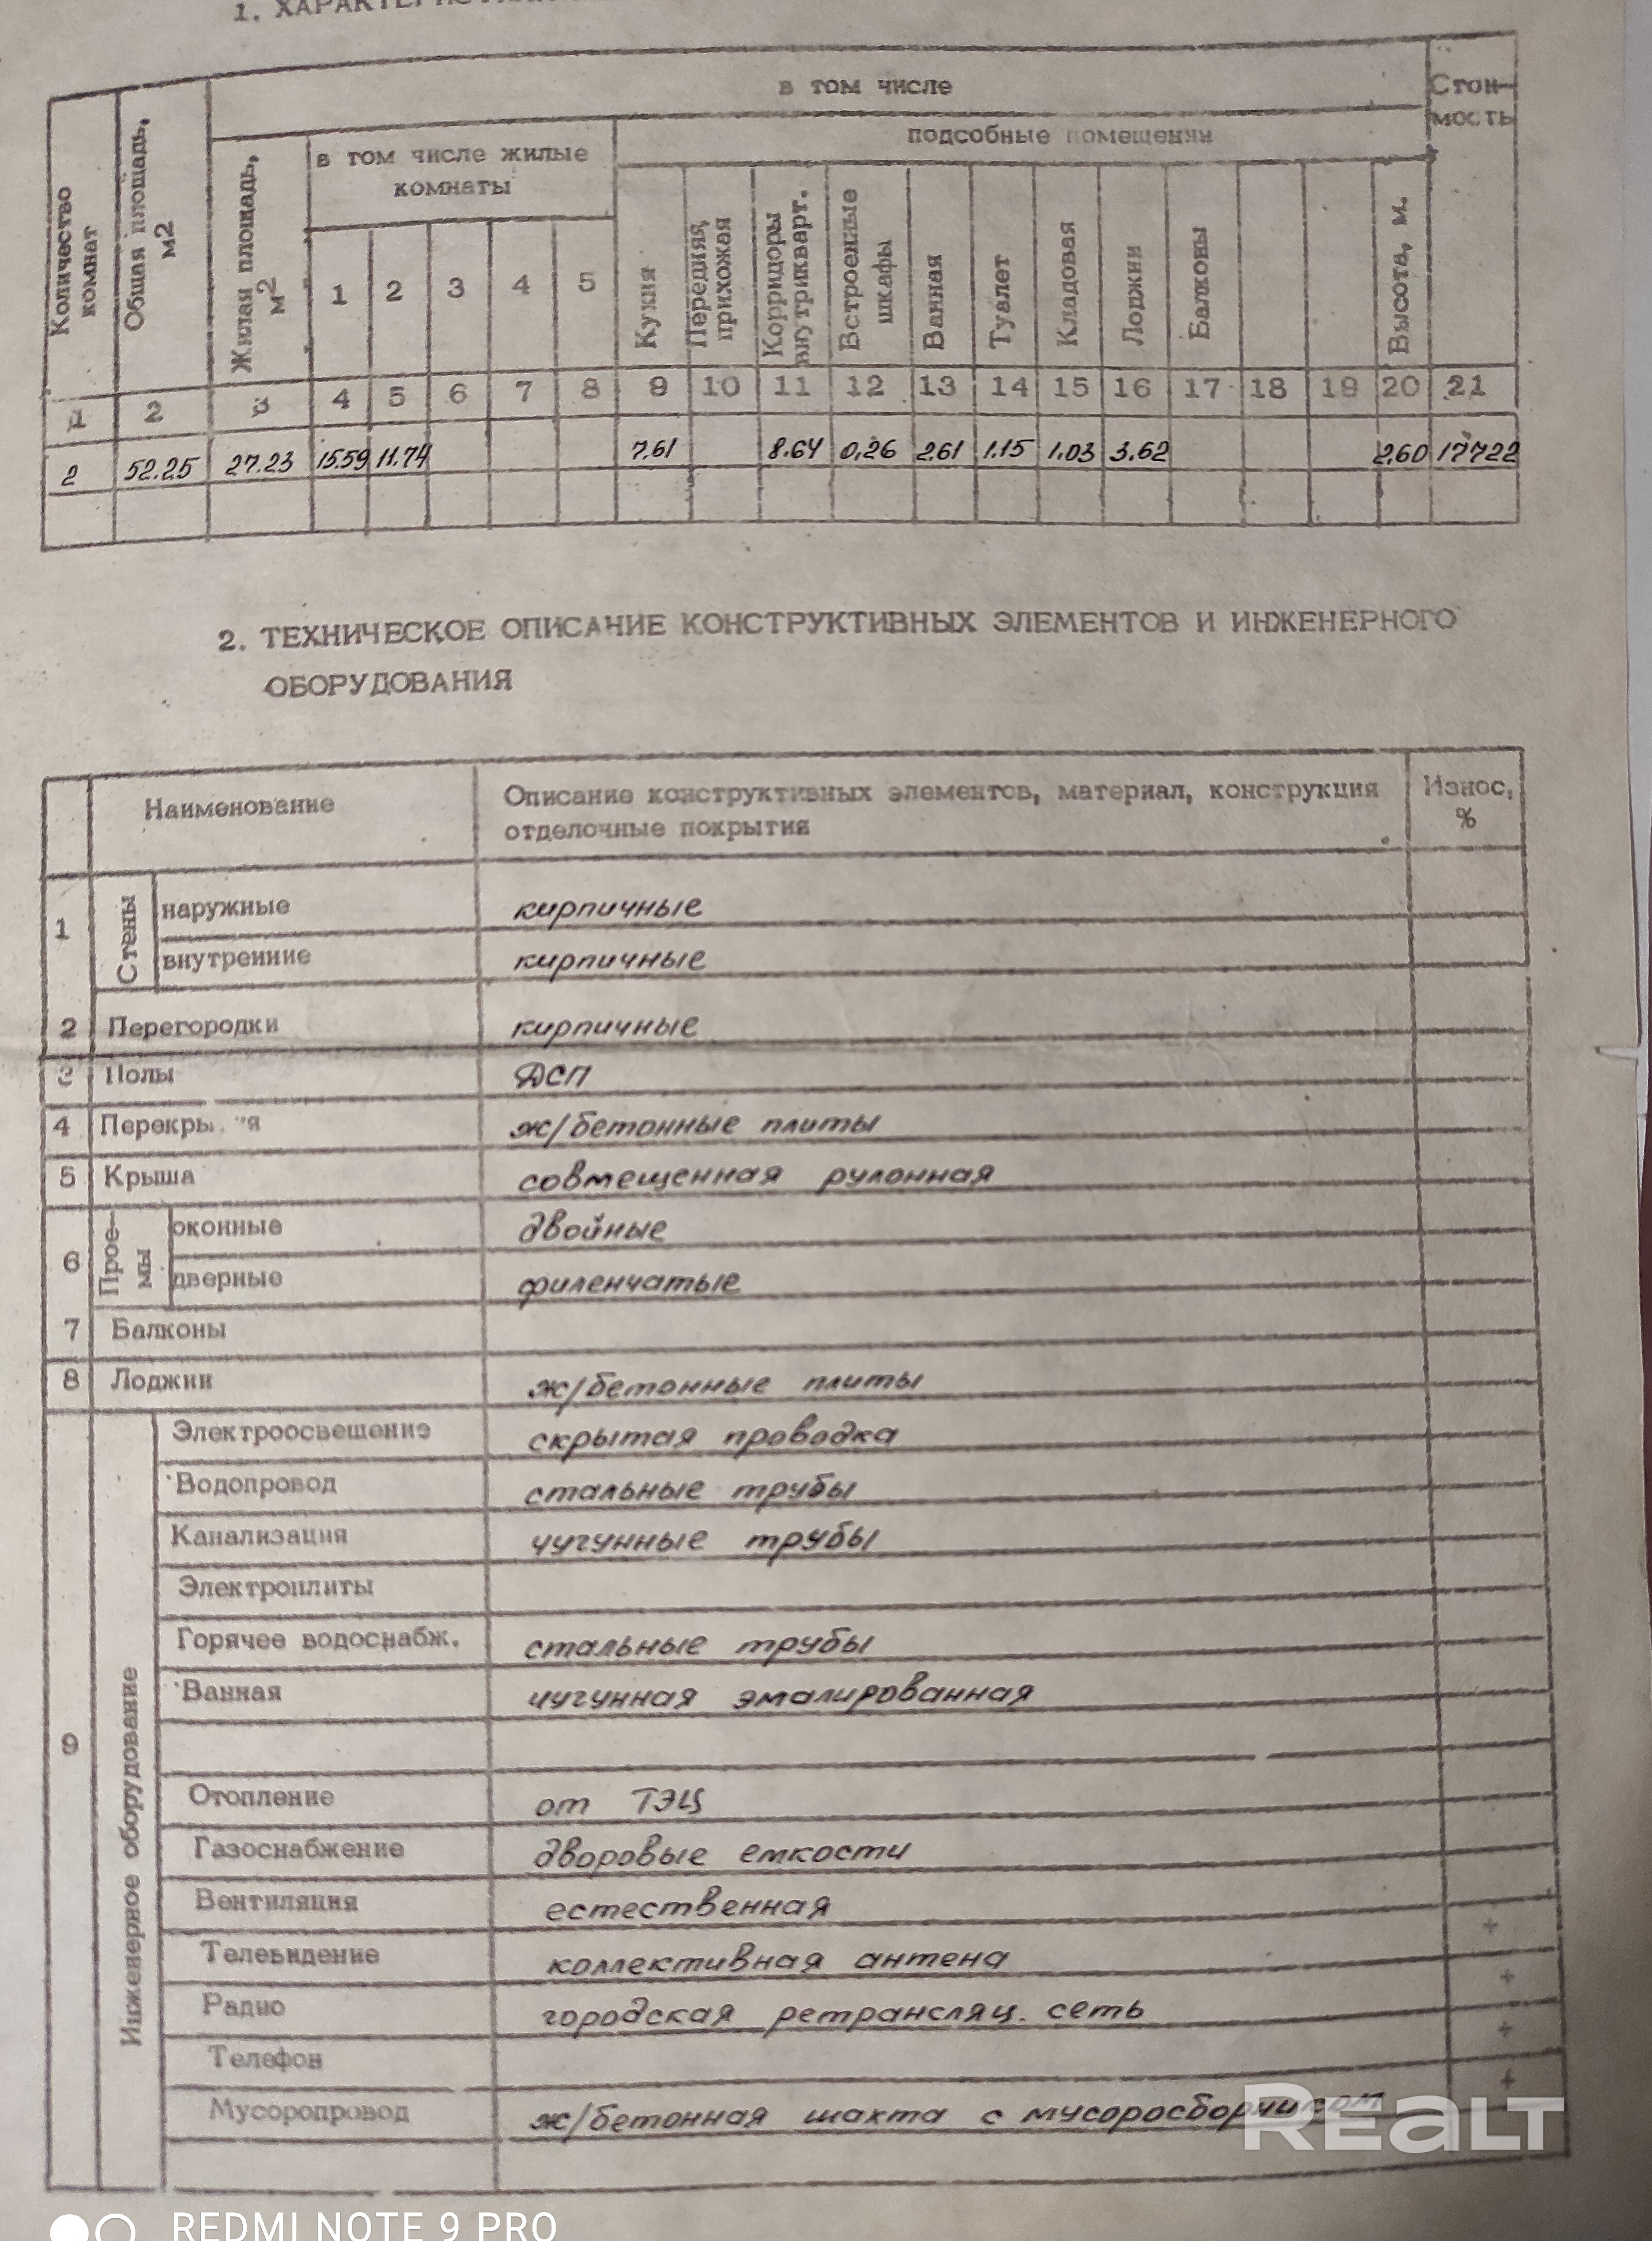 1. ХАРАКТЕРИСТИКА
Количество комнат
Общая площадь, м2
в том числе
Стои-
мость
Жилая площадь, м2
в том числе жилые
комнаты
подсобные помещения
1 2 3 4 5
Кухня
Передняя, прихожая
Корридоры внутрикварт.
Встроенные шкафы
Ванная
Туалет
Кладовая
Лоджии
Балконы
Высота, м.
1 2 3 4 5 6 7 8 9 10 11 12 13 14 15 16 17 18 19 20 21
2 52.25 27.23 15.59 11.74 7.61 8.64 0.26 2.61 1.15 1.03 3.62 2.60 17722
2. ТЕХНИЧЕСКОЕ ОПИСАНИЕ КОНСТРУКТИВНЫХ ЭЛЕМЕНТОВ И ИНЖЕНЕРНОГО
ОБОРУДОВАНИЯ
Наименование
Описание конструктивных элементов, материал, конструкция
отделочные покрытия
Износ,
%
1 Стены наружные кирпичные
внутренние кирпичные
2 Перегородки кирпичные
3 Полы ДСП
4 ж/бетонные плиты
5 Крыша совмещенная рулонная
6 Прое-
мы оконные двойные
дверные филенчатые
7 Балконы
8 Лоджии ж/бетонные плиты
9 Инженерное оборудование
Электроосвещение скрытая проводка
Водопровод стальные трубы
Канализация чугунные трубы
Электроплиты
Горячее водоснабж. стальные трубы
Ванная чугунная эмалированная
Отопление от ТЭЦ
Газоснабжение дворовые емкости
Вентиляция естественная
Телевидение коллективная антена
+
Радио городская ретрансляц. сеть
+
Телефон
+
Мусоропровод ж/бетонная шахта с мусоросборником
+
REALT
REDMI NOTE 9 PRO